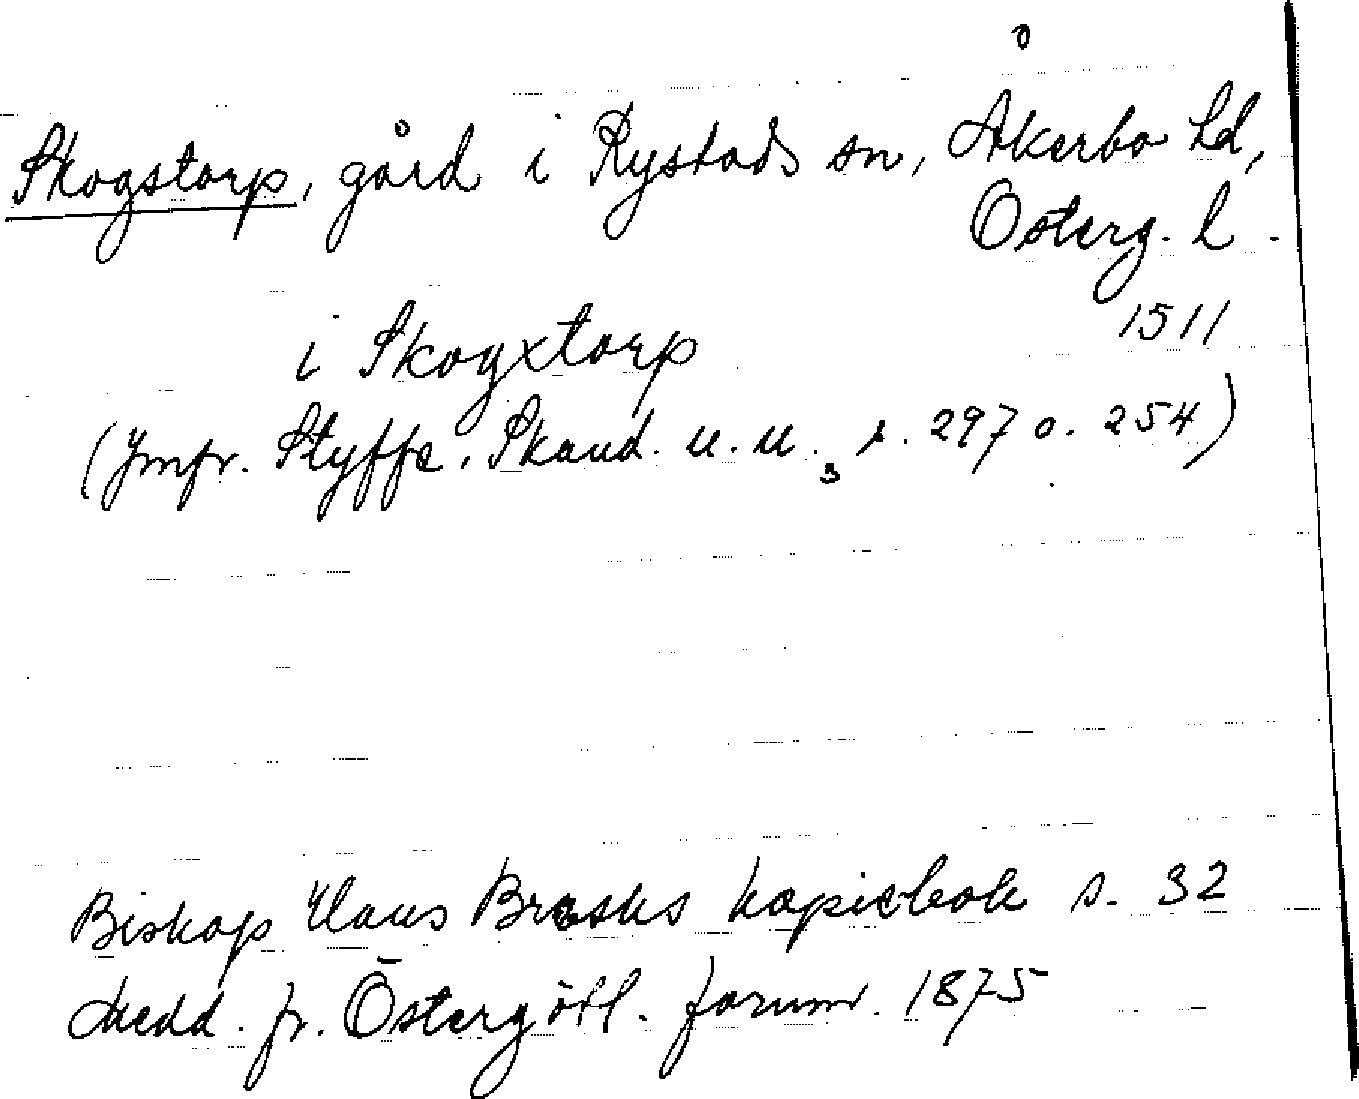 Skogstorp, gård i Rystads sn, Åkerbo hd,
Österg. l.
i Skogxtorp 1511
(Jmfr. Styffe, Skand. u. u.3 s. 297 o. 254)
Biskop Hans Brasks kopiebok s. 32
Medd. fr. Östergötl. fornm. 1875